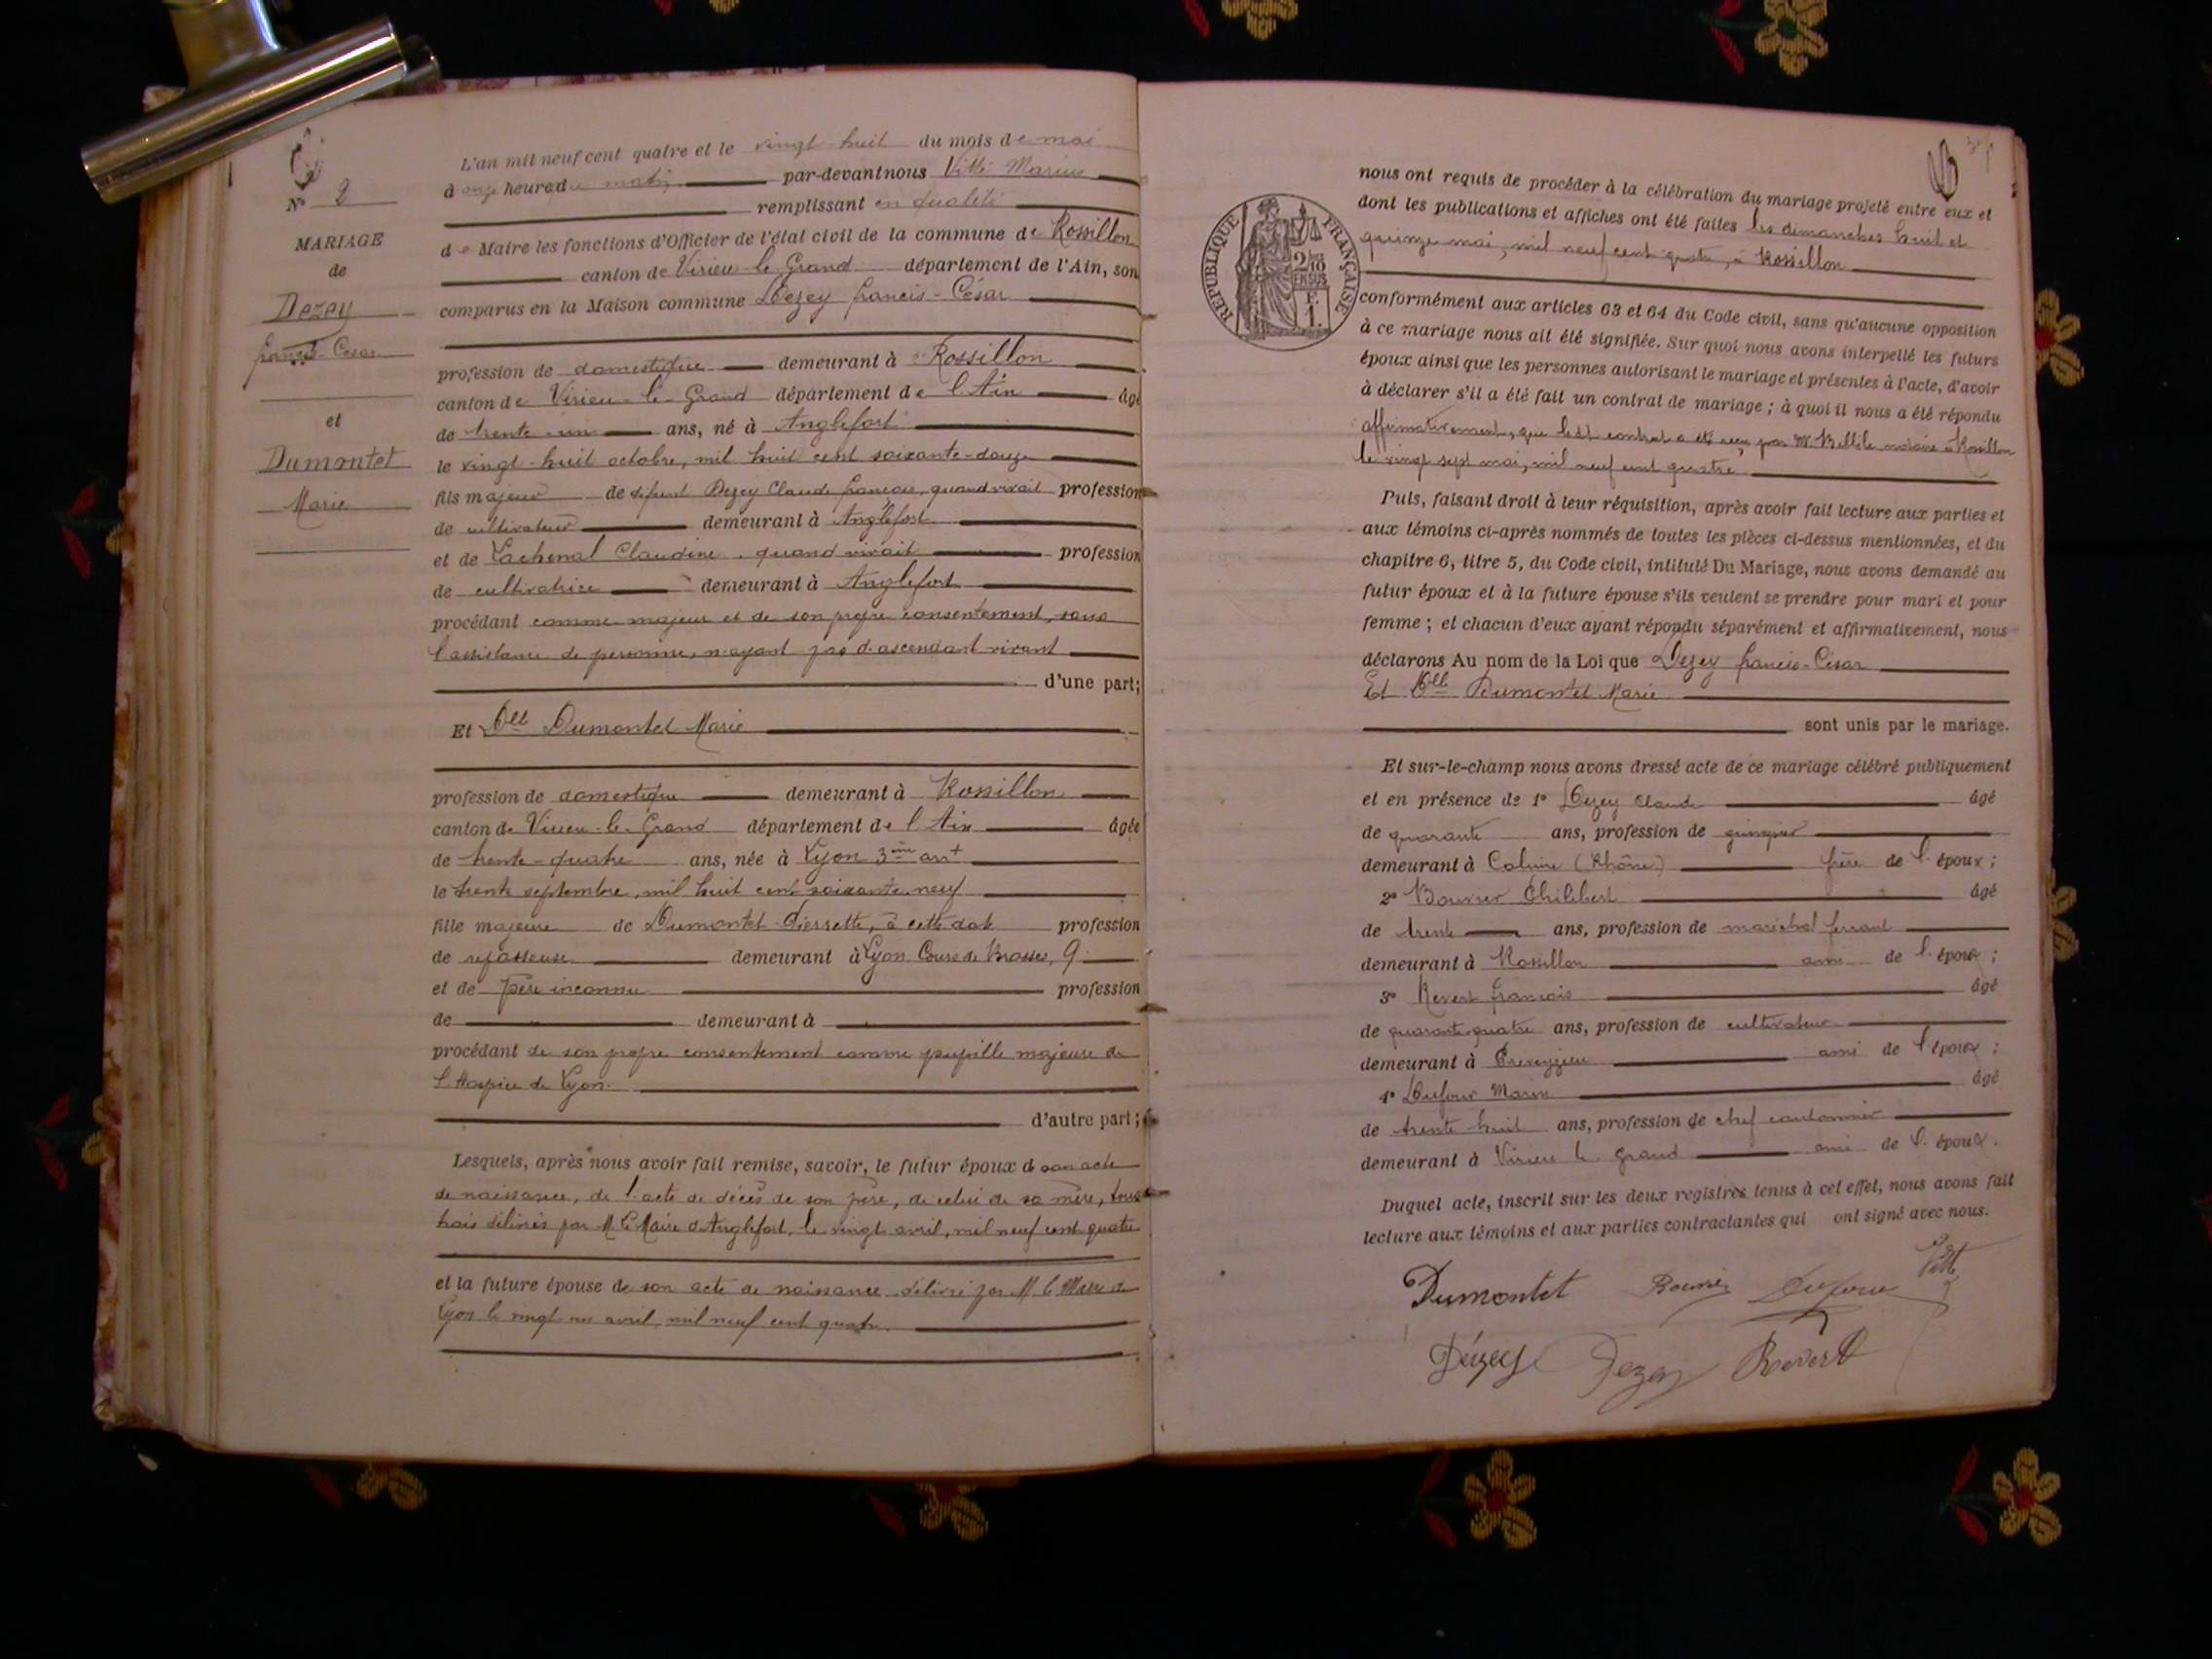 N° 2
MARIAGE
de
Dezey
francis-César
et
Dumontet
Marie
L'an mil neuf cent quatre et le vingt-huit du mois de mai
à onze heures du matin par-devant nous Vitte Marius
remplissant en qualité
de Maire les fonctions d'Officier de l'état civil de la commune de Rossillon
canton de Virieu-le-Grand département de l'Ain, son
comparus en la Maison commune Dezey francis-César
profession de domestique demeurant à Rossillon
canton de Virieu-le-Grand département de l'Ain âgé
de trente-un ans, né à Anglefort
le vingt-huit octobre, mil huit cent soixante-douze
fils majeur de défunt Dezey Claude françois, quand vivait profession
de cultivateur demeurant à Anglefort
et de Lachenal Claudine, quand vivait profession
de cultivatrice demeurant à Anglefort
procédant comme majeur et de son propre consentement, sans
l'assistance de personne, n'ayant pas d'ascendant vivant
d'une part;
Et Dlle Dumontet Marie
profession de domestique demeurant à Rossillon
canton de Virieu-le-Grand département de l'Ain âgée
de trente-quatre ans, née à Lyon 3ème arrt
le trente septembre, mil huit cent soixante-neuf
fille majeure de Dumontet Pierrette, à cette date profession
de repasseuse demeurant à Lyon Cours de Brosses, 9
et de père inconnu profession
de demeurant à
procédant de son propre consentement comme pupille majeure de
l'Hospice de Lyon.
d'autre part;
Lesquels, après nous avoir fait remise, savoir, le futur époux de son acte
de naissance, de l'acte de décès de son père, de celui de sa mère, tous
trois délivrés par M. le Maire d'Anglefort, le vingt avril, mil neuf cent quatre
et la future épouse de son acte de naissance délivré par M. le Maire de
Lyon le vingt un avril, mil neuf cent quatre.
RÉPUBLIQUE FRANÇAISE
2/10
EN SUS
F.
1.
nous ont requis de procéder à la célébration du mariage projeté entre eux et
dont les publications et affiches ont été faites les dimanches huit et
quinze mai, mil neuf cent quatre, à Rossillon
conformément aux articles 63 et 64 du Code civil, sans qu'aucune opposition
à ce mariage nous ait été signifiée. Sur quoi nous avons interpellé les futurs
époux ainsi que les personnes autorisant le mariage et présentes à l'acte, d'avoir
à déclarer s'il a été fait un contrat de mariage ; à quoi il nous a été répondu
affirmativement, que ledit contrat a été reçu par Me notaire à Rossillon
le vingt sept mai, mil neuf cent quatre
Puis, faisant droit à leur réquisition, après avoir fait lecture aux parties et
aux témoins ci-après nommés de toutes les pièces ci-dessus mentionnées, et du
chapitre 6, titre 5, du Code civil, intitulé Du Mariage, nous avons demandé au
futur époux et à la future épouse s'ils veulent se prendre pour mari et pour
femme ; et chacun d'eux ayant répondu séparément et affirmativement, nous
déclarons Au nom de la Loi que Dezey francis-César
Et Dlle Dumontet Marie
sont unis par le mariage.
Et sur-le-champ nous avons dressé acte de ce mariage célébré publiquement
et en présence de 1° Dezey Claude âgé
de quarante ans, profession de guimpier
demeurant à Caluire (Rhône) frère de l'époux ;
2° Bouvier Philibert âgé
de trente ans, profession de maréchal ferrant
demeurant à Rossillon ami de l'époux ;
3° Revert françois âgé
de quarante-quatre ans, profession de cultivateur
demeurant à Preveyzieu ami de l'époux ;
4° Dufour Marin âgé
de trente huit ans, profession de chef cantonnier
demeurant à Virieu le grand ami de l'époux.
Duquel acte, inscrit sur les deux registres tenus à cet effet, nous avons fait
lecture aux témoins et aux parties contractantes qui ont signé avec nous.
Dumontet Bouvier Dufour Vitte
Dézey Dezey Revert